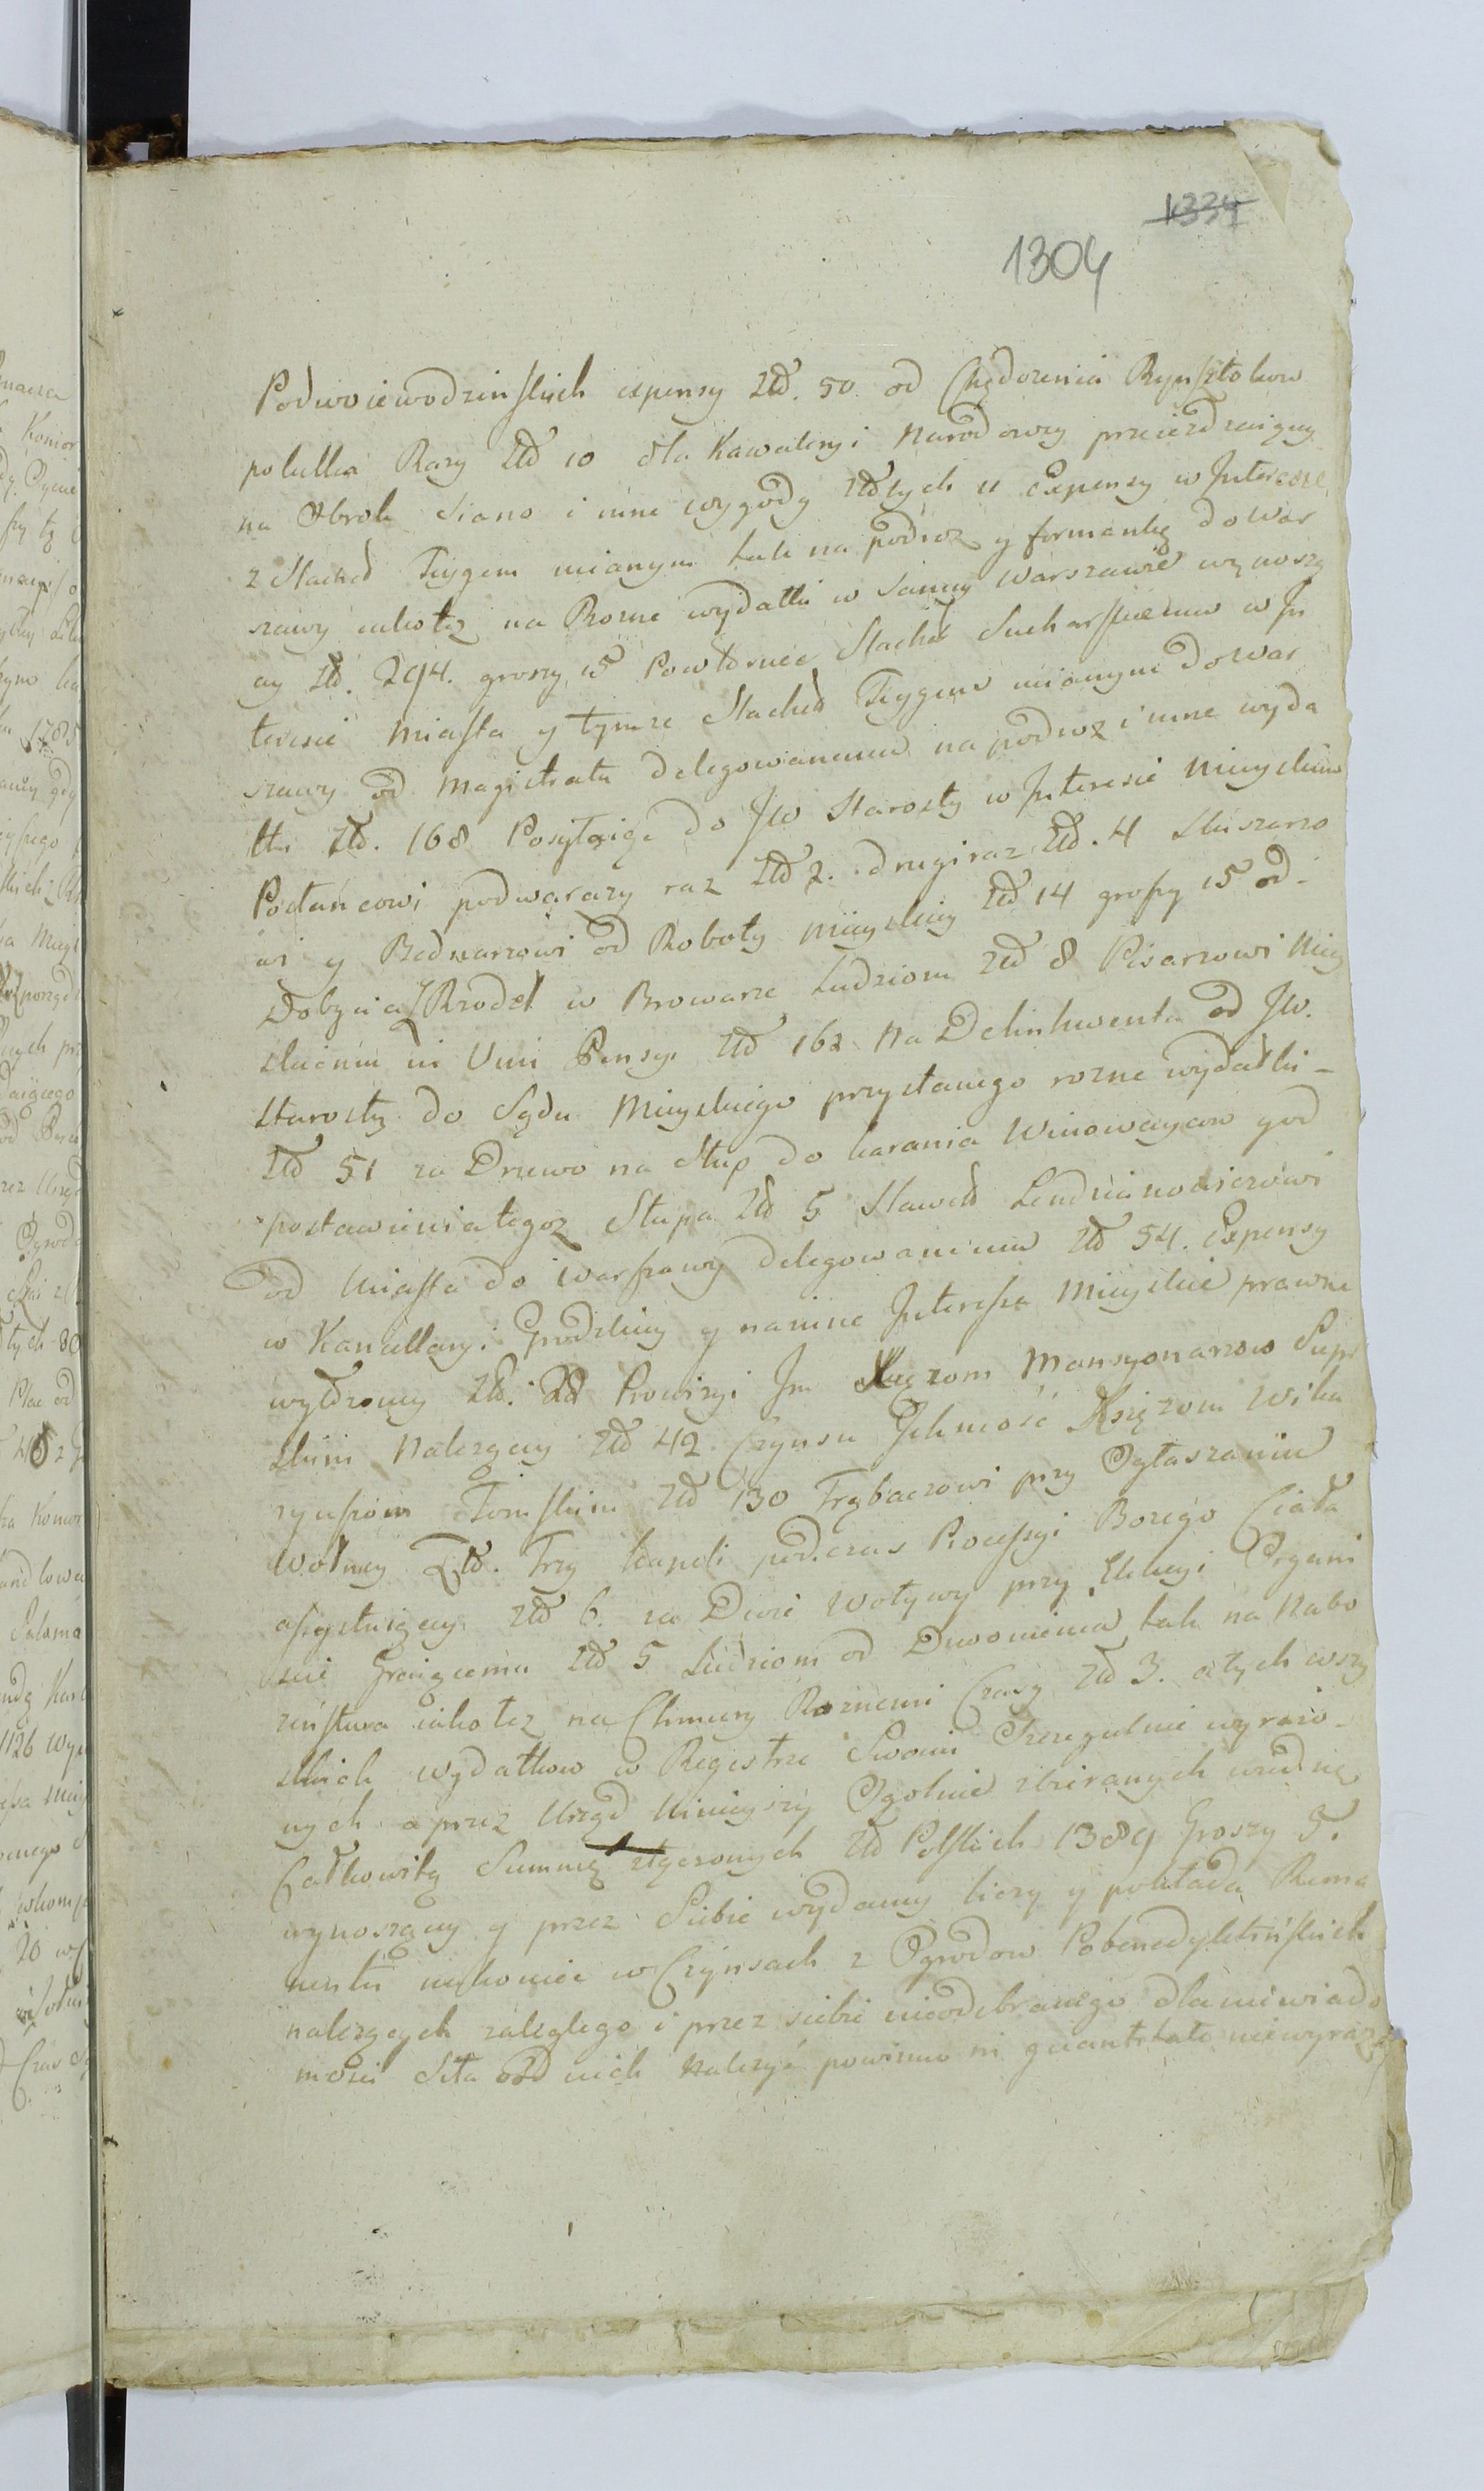 1334
1304
Podwoiewodzinskich expensy Złł. 50. od Chędozenia Rynsztokow
polulka Razy Złł 10 dla Kawaleryi Narodowey przeiezdzaiącey
na Obrok Siano i inne wygody Złłtych 11 Expensy w Interesie
z Slached Feygem mianym tak na podwoz y formankę do War
szawy iako tez na Rozne wydatki w samey Warszawie wynoszą
cy Złł. 294. groszy 15 Powtornie Slached Sucharskiemu w In
teresie Miasta y tymze Slached Feygem mianym do War
szawy od Magistratu delegowanemu na podwoz i inne wyda
tki Złł. 168 Posyłaiąc do JW Starosty w Interesie Mieyskim
Posłańcowi podwa razy raz Złł 2. drugi raz Złł. 4 Slusarzo
wi y Bednarzowi od Roboty Mieyskiey Złł 14 groszy 15 od
Dobycia Zrodeł w Browarze Ludziom Złł 8 Pisarzowi Miey
skiemu Pensyi Złł 162 Na Delinkwenta od JW.
Starosty do Sądu Mieyskiego przysłanego rozne wydatki
Złł 51 za Drzewo na Słup do karania Winowaycow y od
postawienia tegoz Słupa Złł 5 Slawed
od Miasta do Warszawy delegowanemu Złł 54. Expensy
w Kancellaryi Grodzkiey y na inne Interessa Mieyskie prawne
Złł. 22 Prowizyi Jm Xięzom Mansyonarzow
skim Nalezącey Złł 42. Czynszu Ichmość Xięzom Wika
ryuszom Złł 130 Trębaczowi przy Ogłaszaniu
Wolney Złł. Trzy kapeli podczas Processyi Bozego Ciała
assystuiącey Złł 6. za Dwie Wotywy przy Elekcyi Organi
scie Graiącemu Złł 5 Ludziom od Dzwonienia tak na Nabo
zeństwa iako tez na Chmury Roznemi Czasy Złł 3. a tych wszy
stkich wydatkow w Regestrze Swoim Szczegulnie wyrazo
nych a przez Urząd Ninieyszy Ogolnie zbieranych w iednę
Całkowitą Summę złączonych Złł Polskich 1389 Groszy 3.
wynoszącey y przez Siebie wydaney liczy y pokłada Rema
nentu nakoniec w Czynszach z Ogrodow Pobenedyktinskich
nalezących zaległego i przez siebie nieodebranego dla niewiado
mosci Siła od nich Nalezyć powinno in quantitate niewyraza